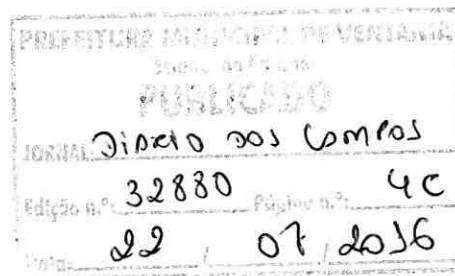 PREFEITURA MUNICIPAL DE VENTANIA
PUBLICADO
JORNAL: DIÁRIO DOS CAMPOS
Edição n.º: 32880 Página n.º: 4C
Data: 22 / 07 / 2016